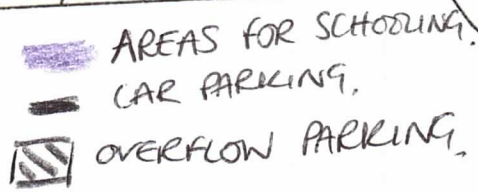 AREAS FOR SCHOOLING.
CAR PARKING.
OVERFLOW PARKING.